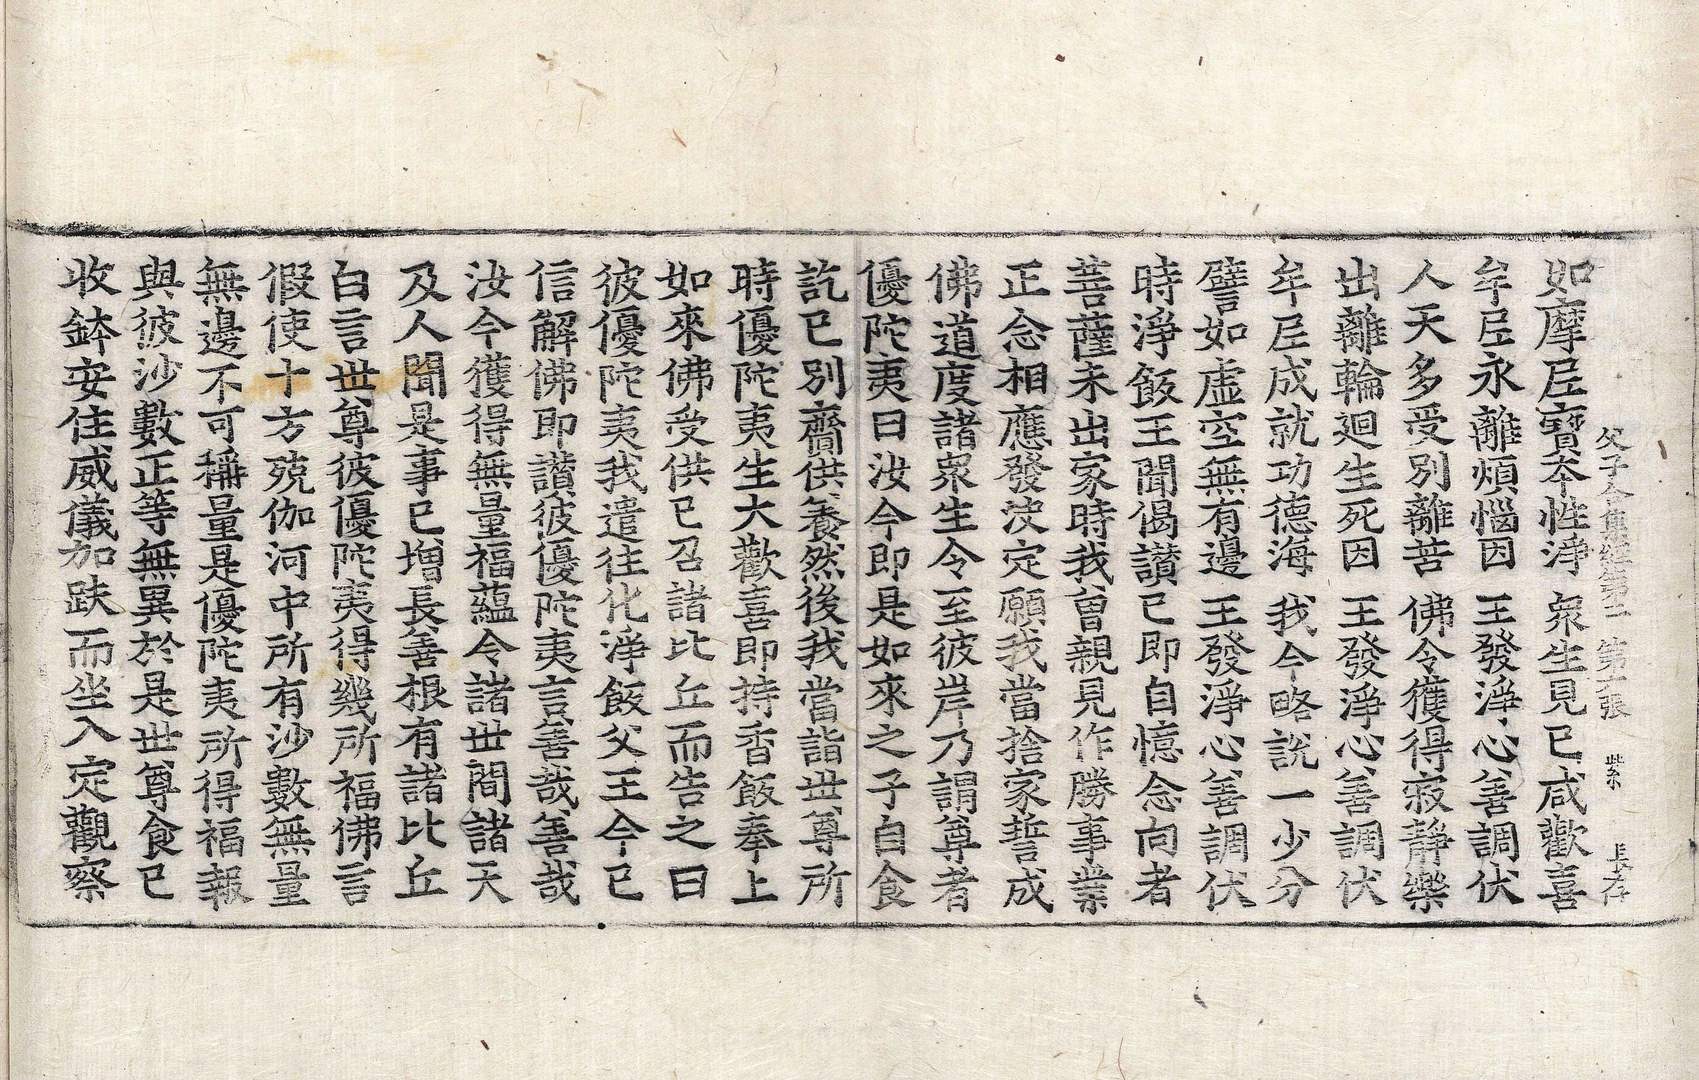 父子合集經第二 第十張 紫 長存
如摩尼寶本性淨 衆生見已咸歡喜
牟尼永離煩惱因 王發淨心善調伏
人天多受別離苦 佛令獲得寂靜樂
出離輪迴生死因 王發淨心善調伏
牟尼成就功德海 我今略說一少分
譬如虛空無有邊 王發淨心善調伏
時淨飯王聞偈讚已即自憶念向者
菩薩未出家時我曾親見作勝事業
正念相應發決定願我當捨家誓成
佛道度諸衆生令至彼岸乃謂尊者
優陀夷曰汝今即是如來之子自食
訖已別齎供養然後我當詣世尊所
時優陀夷生大歡喜即持香飯奉上
如來佛受供已召諸比丘而告之曰
彼優陀夷我遣往化淨飯父王今已
信解佛即讚彼優陀夷言善哉善哉
汝今獲得無量福蘊令諸世間諸天
及人聞是事已增長善根有諸比丘
白言世尊彼優陀夷得幾所福佛言
假使十方殑伽河中所有沙數無量
無邊不可稱量是優陀夷所得福報
與彼沙數正等無異於是世尊食已
收鉢安住威儀加趺而坐入定觀察